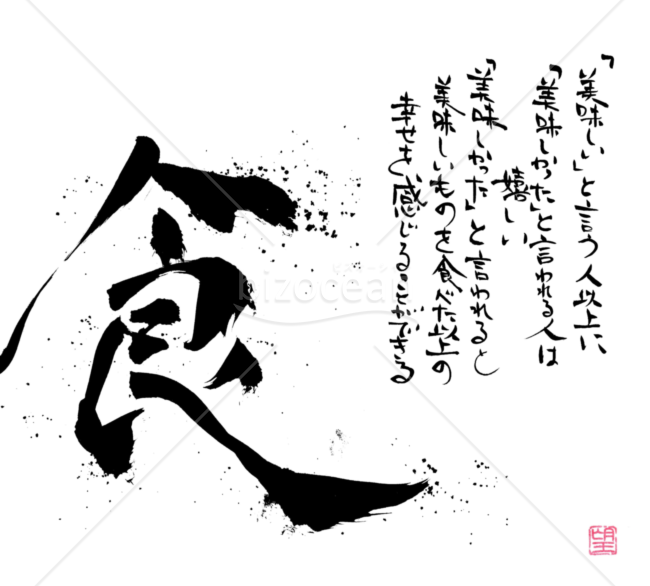 「美味しい」と言う人以上に
「美味しかった」と言われる人は
嬉しい
「美味しかった」と言われると
美味しいものを食べた以上の
幸せを感じることができる
食
bizocean
望